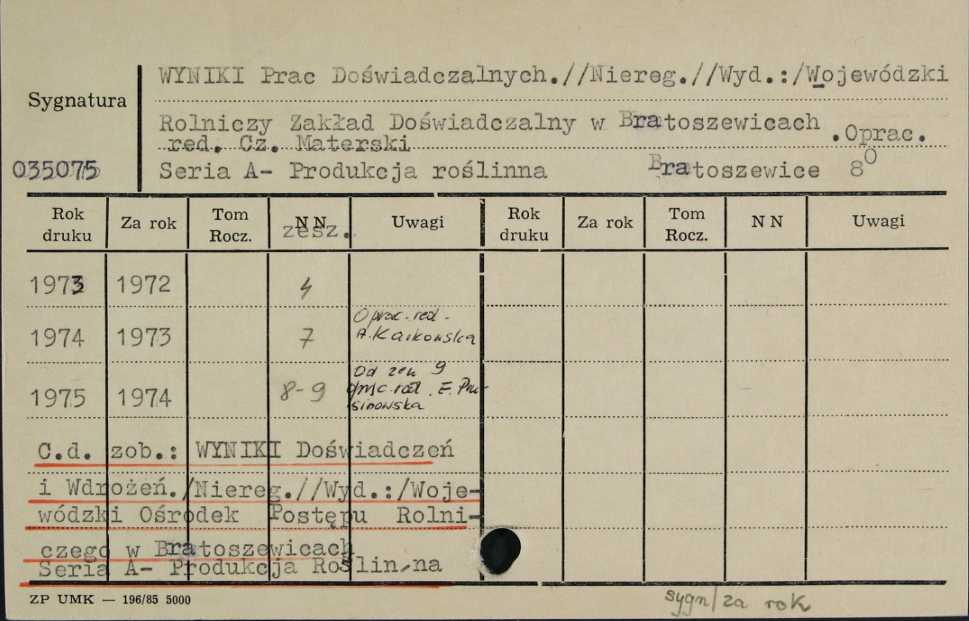 WYNIKI Prac Doświadczalnych.//Niereg.//Wyd.:/Wojewódzki
Sygnatura
Rolniczy Zakład Doświadczalny w Bratoszewicach .Oprac.
red. Cz. Materski
035075 Seria A- Produkcja roślinna Bratoszewice 8⁰
Rok druku Za rok Tom Rocz. N N zesz. Uwagi Rok druku Za rok Tom Rocz. N N Uwagi
1973 1972 4
1974 1973 7 Oprac. red. A. Kaikowska
1975 1974 8-9 Od zesz 9 oprac. red. E. Prusinowska
C.d. zob.: WYNIKI Doświadczeń
i Wdrożeń./Niereg.//Wyd.:/Woje-
wódzki Ośrodek Postępu Rolni-
czego w Bratoszewicach
Seria A- Produkcja Roślinna
ZP UMK — 196/85 5000
sygn/za rok